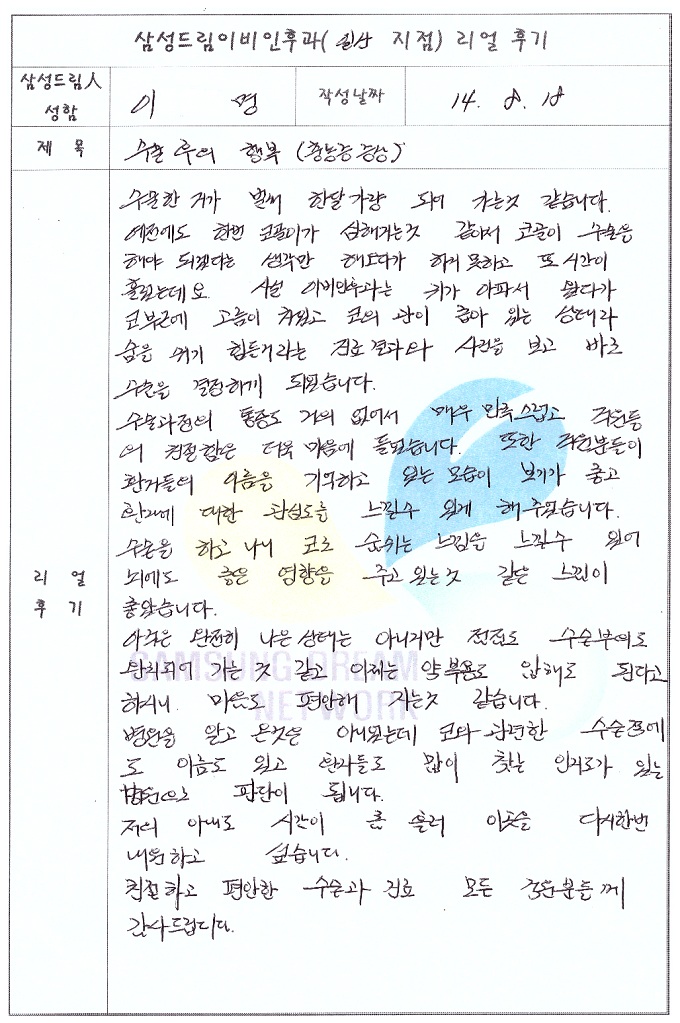 삼성드림이비인후과( 일산 지점) 리얼 후기
삼성드림人 성함 이 명 작성날짜 14. 8. 18
제 목 수술 후의 행복 (축농증 증상)
리 얼 후 기
수술한 지가 벌써 한달가량 되어 가는것 같습니다.
예전에도 한번 코골이가 심해지는것 같아서 코골이 수술을
해야 되겠다는 생각만 해오다가 하지 못하고 또 시간이
흘렀는데요. 사실 이비인후과는 귀가 아파서 왔다가
코부근에 고름이 차있고 코의 관이 좁아 있는 상태라
숨을 쉬기 힘든거라는 진료결과와 사진을 보고 바로
수술을 결정하게 되었습니다.
수술과정의 통증도 거의 없어서 매우 만족스럽고 직원들
의 친절함은 더욱 마음에 들었습니다. 또한 직원분들이
환자들의 이름을 기억하고 있는 모습이 보기가 좋고
환자에 대한 관심도를 느낄수 있게 해주었습니다.
수술을 하고 나니 코로 숨쉬는 느낌을 느낄수 있어
뇌에도 좋은 영향을 주고 있는것 같은 느낌이
좋았습니다.
아직은 완전히 나은 상태는 아니지만 점점도 수술부위도
되어 가는 것 같고 이제는 약복용도 안해도 된다고
하시니 마음도 편안해 가는것 같습니다.
병원을 알고 온것은 아니었는데 코와 관련한 수술쪽에
도 이름도 있고 환자들도 많이 찾는 인지도가 있는
병원으로 판단이 됩니다.
저의 아내도 시간이 좀 흘러 이곳을 다시한번
내원하고 싶습니다.
친절하고 편안한 수술과 진료 모든 직원분들께
감사드립니다.
SAMSUNG DREAM
NETWORK